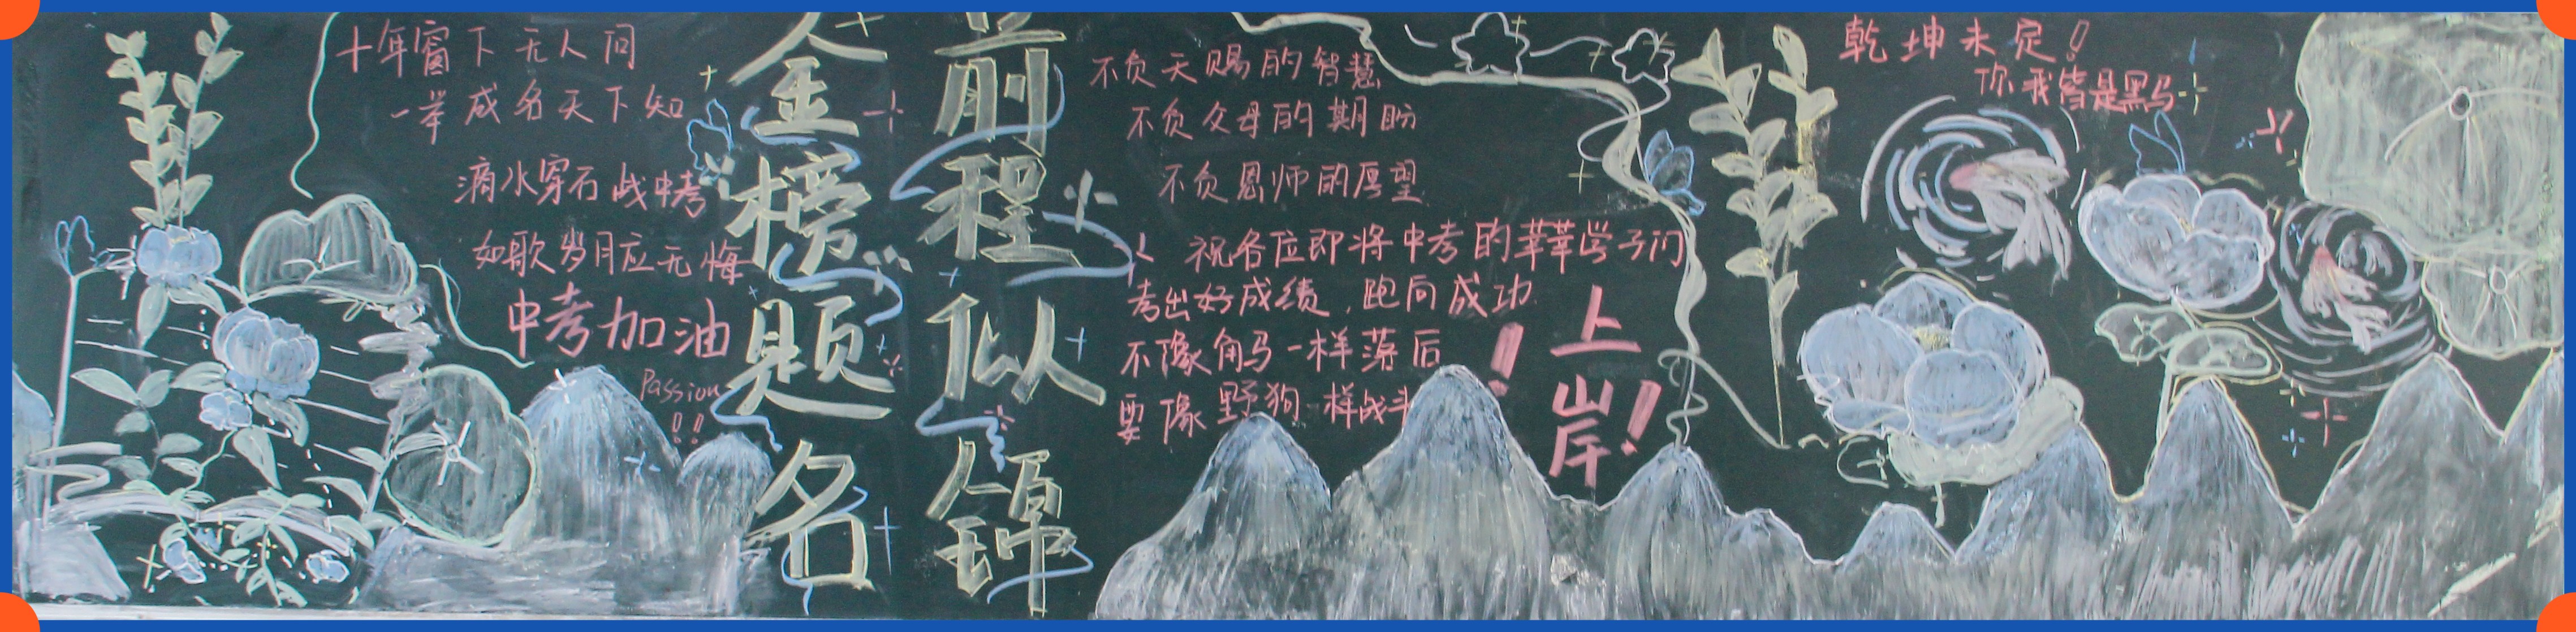 十年窗下无人问
一举成名天下知
滴水穿石战中考
如歌岁月应无悔
中考加油
Passion
!!
金榜题名
前程似锦
不负天赐的智慧
不负父母的期盼
不负恩师的厚望
祝各位即将中考的莘莘学子们
考出好成绩，跑向成功
不像角马一样落后
要像野狗一样战斗
！
上岸！
乾坤未定！
你我皆是黑马